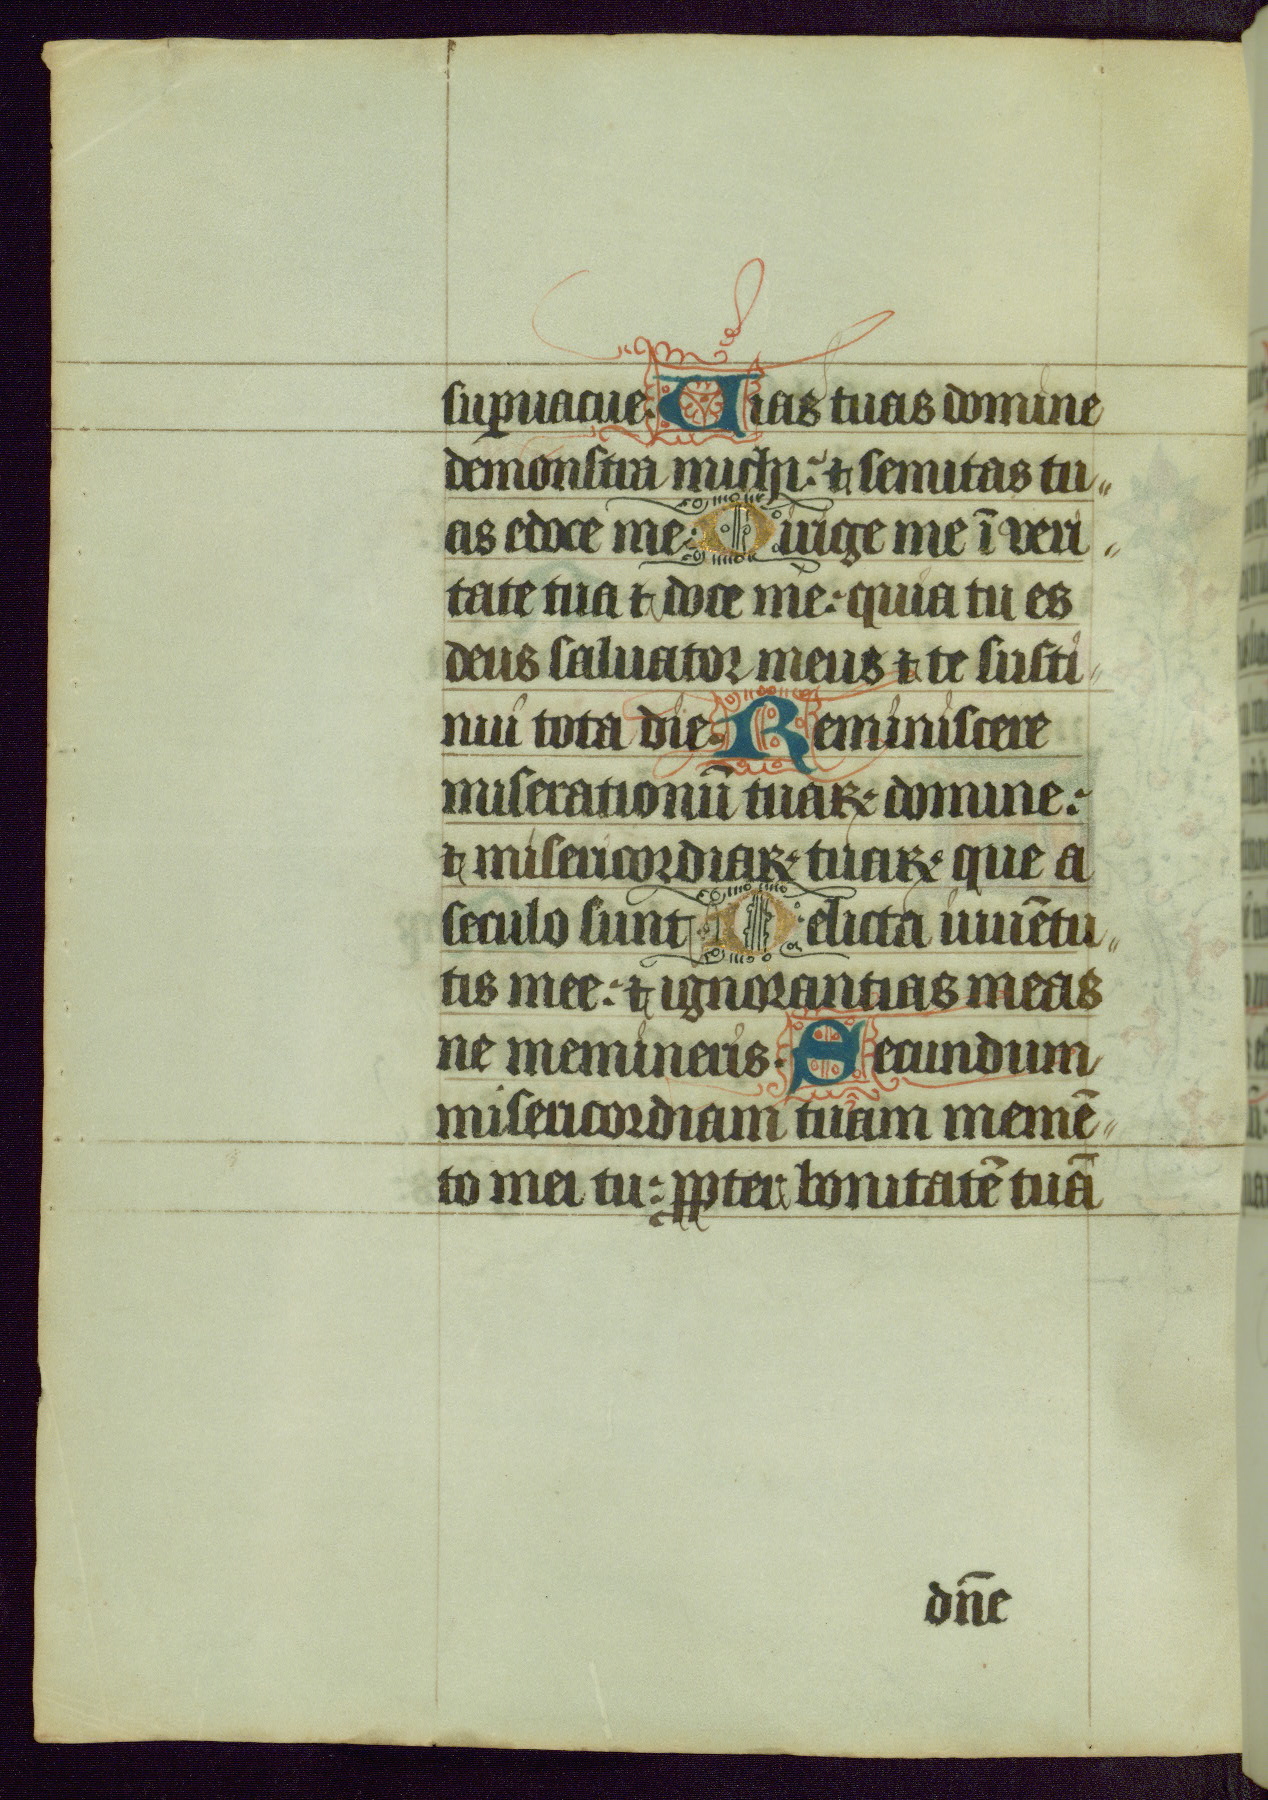 suꝑuacue. Uias tuas domine
demonstra michi: ⁊ semitas tu„
as edoce me: Dirige me ī veri„
tate tua ⁊ doce me: quia tu es
deus saluator meus ⁊ te susti„
nui tota die. Reminiscere
miserationū tuaꝝ domine:
⁊ misericordiaꝝ tuaꝝ que a
seculo sunt Delicta iuuētu„
tis mee: ⁊ ignorantias meas
ne memineris. Secundum
misericordiam tuam memē„
to mei tu: ꝓpter bonitatē tuā
dn̄e